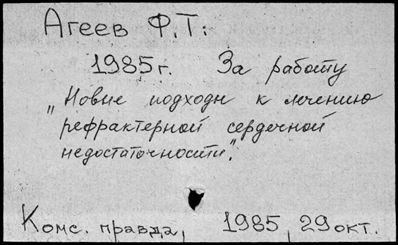 Агеев Ф.Т:
1985г. За работу
„Новые подходы к лечению
рефрактерной сердечной
недостаточности".
Комс. правда, 1985, 29 окт.